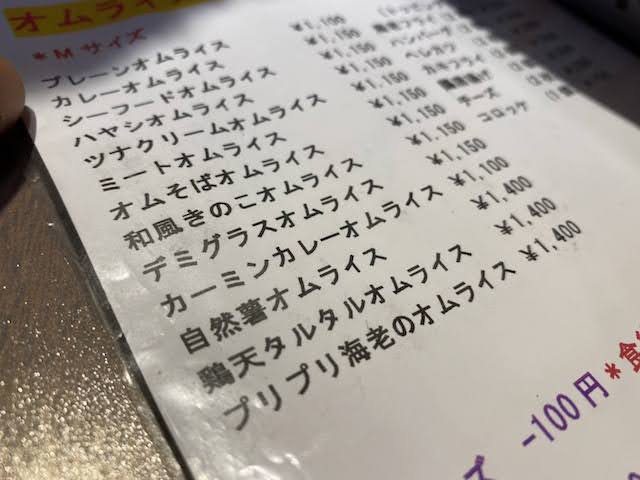 オムライス
*Mサイズ
プレーンオムライス ¥1,100
カレーオムライス ¥1,150
シーフードオムライス ¥1,150
ハヤシオムライス ¥1,150
ツナクリームオムライス ¥1,150
ミートオムライス ¥1,150
オムそばオムライス ¥1,150
和風きのこオムライス ¥1,150
デミグラスオムライス ¥1,150
カーミンカレーオムライス ¥1,100
自然薯オムライス ¥1,400
鶏天タルタルオムライス ¥1,400
プリプリ海老のオムライス ¥1,400
ハンバーグ
ヘレカツ
カキフライ
鶏唐揚げ
チーズ
コロッケ
ズ -100円 *食